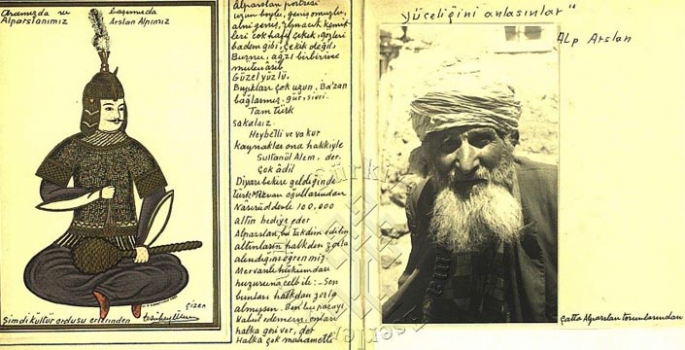 Aramızda ve başımızda
Alparslanımız Arslan Alpımız
çizen
Şimdi kültür ordusu erlerinden
Alparslan portresi
uzun boylu, geniş omuzlu,
alnı geniş, elmacık kemik-
leri çok hafif çekik, gözleri
badem gibi, çekik değil,
Burnu, ağzı birbirine
mütenâsib
Güzel yüzlü.
Bıyıkları çok uzun, Ba'zan
bağlarmış. gür, sivri.
Tam türk
sakalsız.
Heybetli ve vakur
Kaynaklar ona hakkıyle
Sultanül Âlem, der.
Çok âdil
Diyarıbekire geldiğinde
türk Mervan oğullarından
Nasırüddevle 100,000
altın hediye eder
Alparslan, bu takdim edilen
altınların halkdan zorla
alındığını öğrenmiş
Mervanlı hükümdarı
huzuruna celb ile: - Sen
bunları halkdan zorla
almışsın. Ben bu parayı
Kabul edemem. onları
halka geri ver, der
Halka çok mahametle
yüceliğini anlasınlar"
Alp Arslan
Çatta Alparslan torunlarından